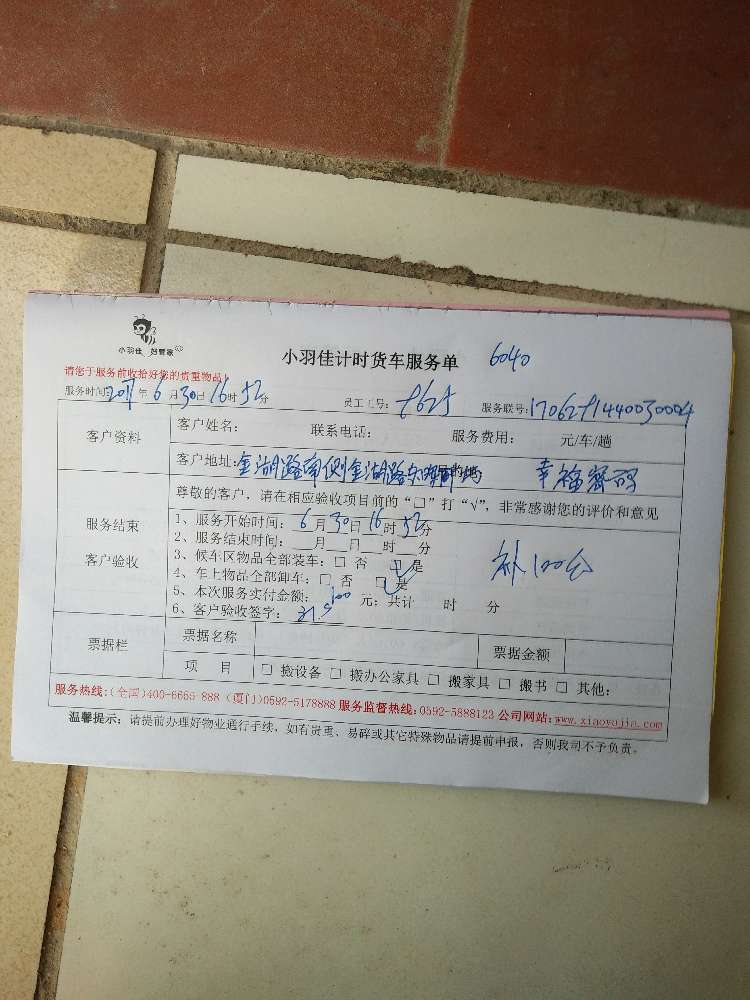 小羽佳 管家
小羽佳计时货车服务单 6040
请您于服务前收拾好您的贵重物品!
服务时间: 年 6 月 30 日 16 时 52 分 员工工号: 服务联号:
客户资料
客户姓名: 联系电话: 服务费用: 元/车/趟
客户地址: 金湖路南侧金湖路 幸福密码
尊敬的客户,请在相应验收项目前的“□”打“√”,非常感谢您的评价和意见
服务结束
客户验收
1、服务开始时间: 6 月 30 日 16 时 52 分
2、服务结束时间: 月 日 时 分
3、候车区物品全部装车:□ 否 □ 是
4、车上物品全部卸车:□ 否 □ 是
补100公
5、本次服务实付金额: 100 元;共计 时 分
6、客户验收签字:
票据栏
票据名称 票据金额
项 目 □ 搬设备 □ 搬办公家具 □ 搬家具 □ 搬书 □ 其他:
服务热线:(全国)400-6665-888 (厦门)0592-5178888 服务监督热线:0592-5888123 公司网站:www.xiaoyujia.com
温馨提示:请提前办理好物业通行手续,如有贵重、易碎或其它特殊物品请提前申报,否则我司不予负责。